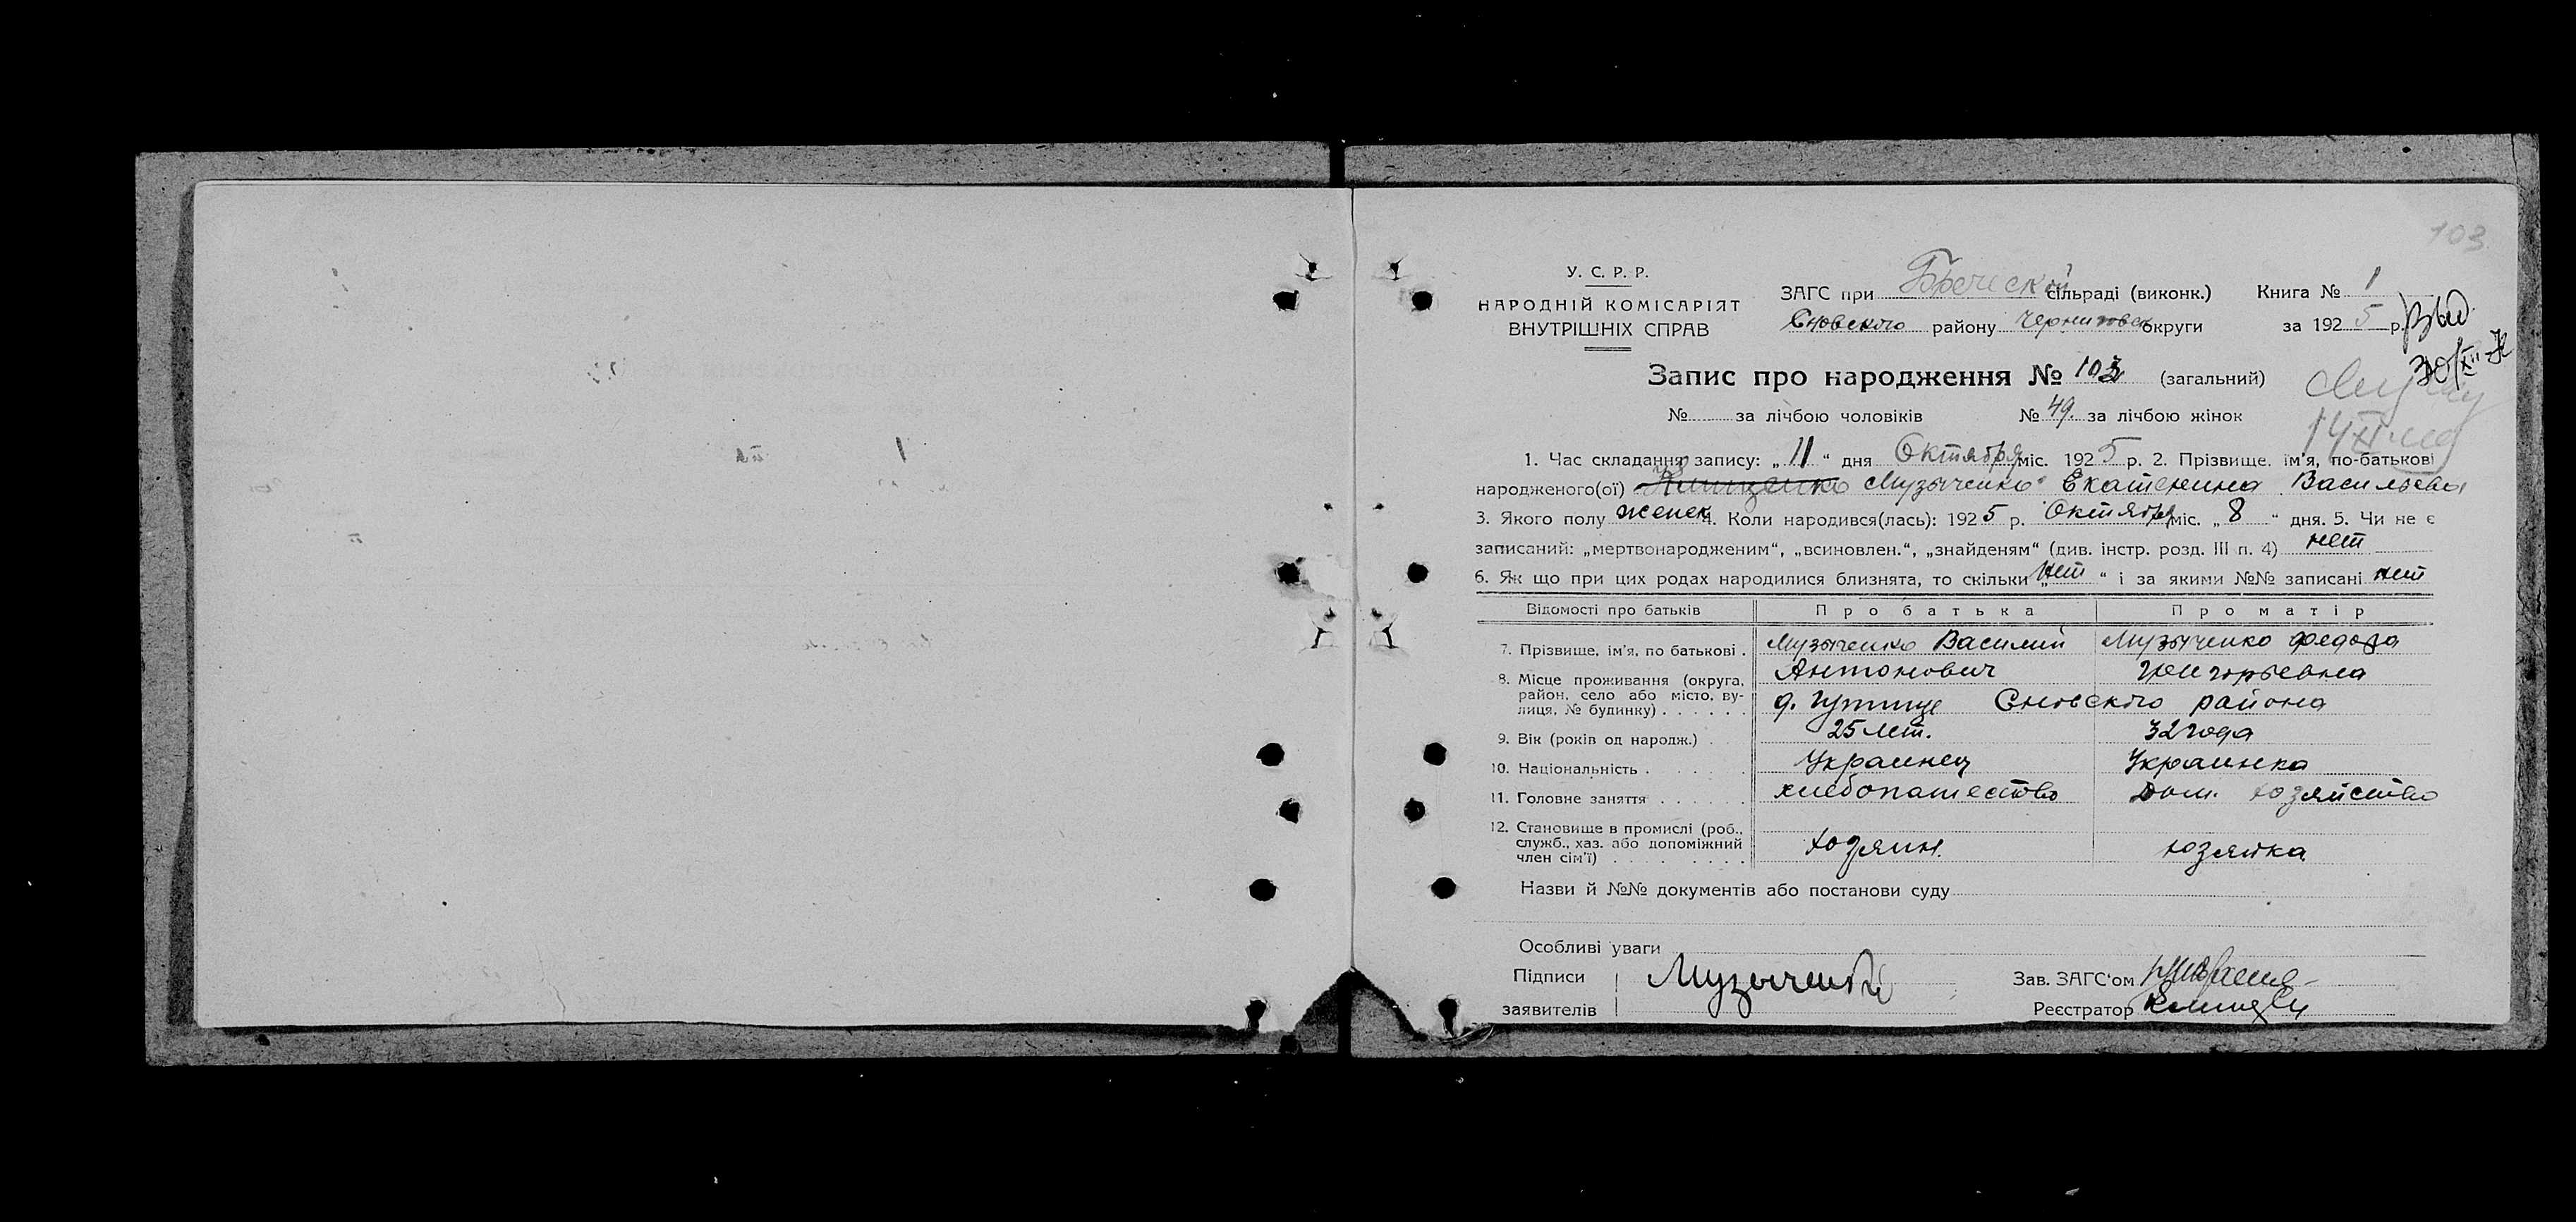 103
У. С. Р. Р.
НАРОДНІЙ КОМІСАРІЯТ
ВНУТРІШНІХ СПРАВ
ЗАГС при Бреческой сільраді (виконк.) Книга № 1
Сновского району Черниговск округи за 1925 р.
Запис про народження № 103 (загальний)
№ за лічбою чоловіків № 49. за лічбою жінок
1. Час складання запису: „11“ дня Октября міс. 1925 р. 2. Прізвище, ім'я, по-батькові
народженого(ої) Музыченко Екатерина Васильева
3. Якого полу женск 4. Коли народився(лась): 1925 р. Октября міс. „8“ дня. 5. Чи не є
записаний: „мертвонародженим“, „всиновлен.“, „знайденям“ (див. інстр. розд. III п. 4) нет
6. Як що при цих родах народилися близнята, то скільки „нет“ і за якими №№ записані нет
Відомості про батьків Про батька Про матір
7. Прізвище, ім'я, по батькові . Музыченко Василий Антонович Музыченко Федора Григорьевна
8. Місце проживання (округа, район, село або місто, вулиця, № будинку) . . . . . . д. Гутище Сновского района
9. Вік (років од народж.) . 25 лет. 32 года
10. Національність . . . . . Украинец Украинка
11. Головне заняття . . . . . . хлебопашество Дом. хозяйство
12. Становище в промислі (роб., служб., хаз. або допоміжний член сім'ї) . . . . . . . . хозяин. хозяйка
Назви й №№ документів або постанови суду
Особливі уваги
Підписи Музыченко Зав. ЗАГС'ом
заявителів Реєстратор